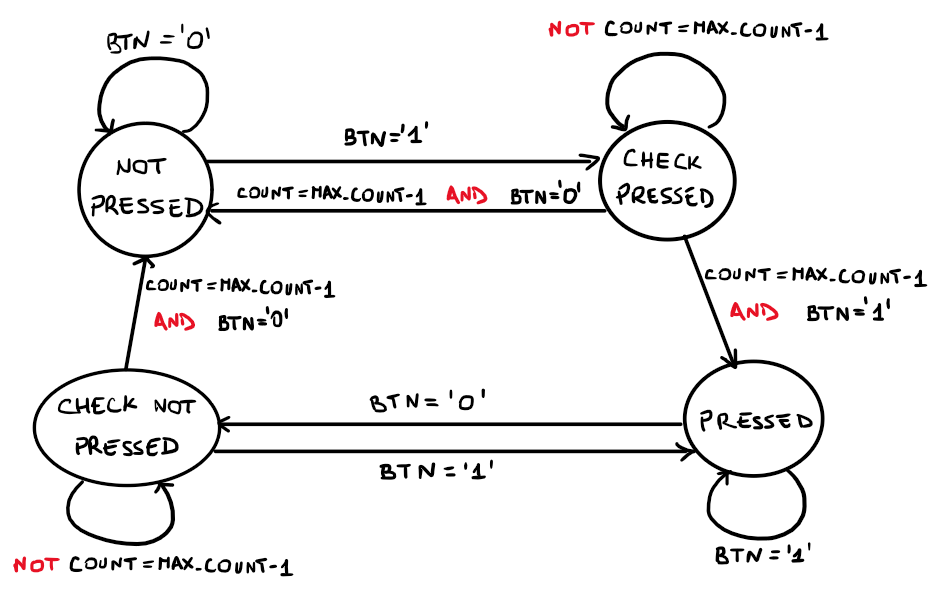 BTN = '0'
NOT COUNT = MAX_COUNT-1
BTN='1'
NOT
PRESSED
CHECK
PRESSED
COUNT=MAX_COUNT-1 AND BTN='0'
COUNT = MAX_COUNT-1
AND BTN='0'
COUNT = MAX_COUNT-1
AND BTN='1'
CHECK NOT
PRESSED
BTN = '0'
PRESSED
BTN = '1'
NOT COUNT = MAX_COUNT-1
BTN = '1'